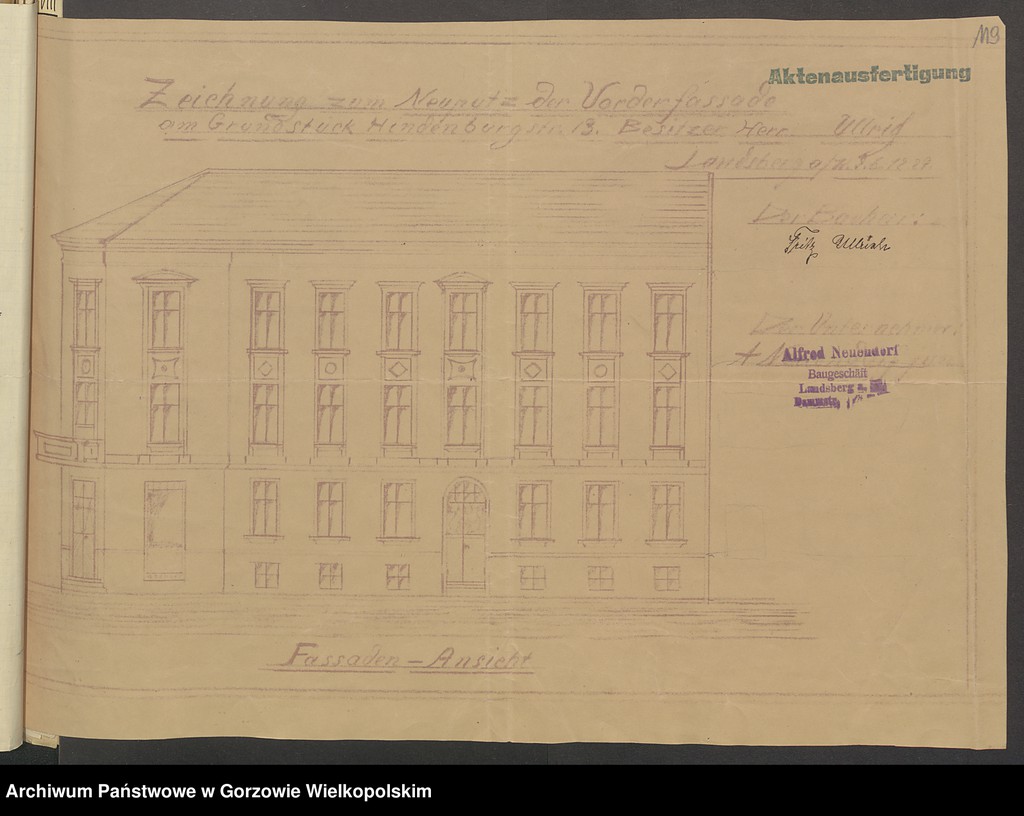 119
Aktenausfertigung
Zeichnung zum Neuputz der Vorderfassade
am Grundstück Hindenburgstr. 13. Besitzer Herr
Landsberg a/W.
Der Bauherr:
Fritz
Der Unternehmer:
Alfred Neuendorf
Baugeschäft
Landsberg a.
Fassaden - Ansicht
Archiwum Państwowe w Gorzowie Wielkopolskim